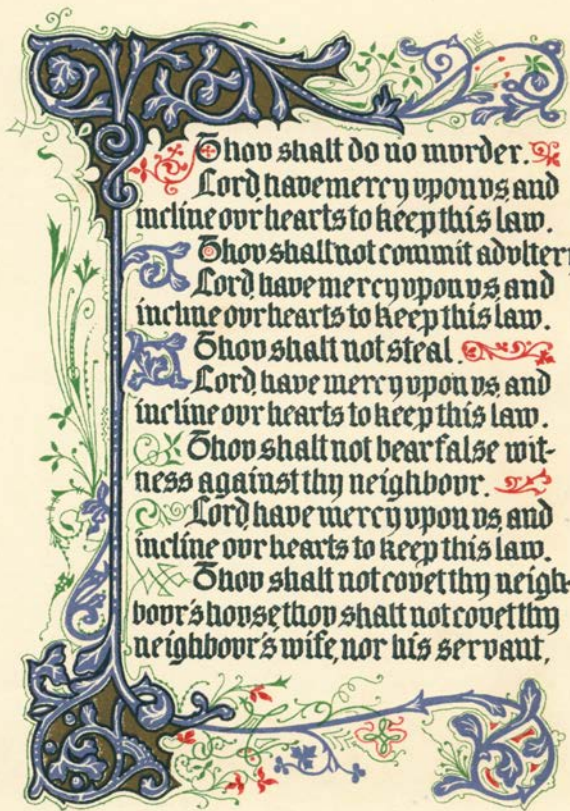 Thov shalt do no mvrder.
Lord, have mercy vpon vs, and
incline ovr hearts to keep this law.
Thov shalt not commit advltery
Lord, have mercy vpon vs, and
incline ovr hearts to keep this law.
Thov shalt not steal.
Lord, have mercy vpon vs, and
incline ovr hearts to keep this law.
Thov shalt not bear false wit-
ness against thy neighbovr.
Lord, have mercy vpon vs, and
incline ovr hearts to keep this law.
Thov shalt not covet thy neigh-
bovr's hovse, thov shalt not covet thy
neighbovr's wife, nor his servant,